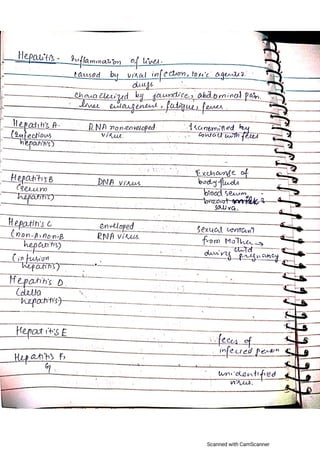 Hepatitis - Inflammation of liver.
caused by viral infection, toxic agents
drugs
characterized by jaundice, abdominal pain.
liver enlargement, fatigue, fever
Hepatitis A - RNA nonenveloped transmitted by
(Infectious virus contact with feces
hepatitis)
Exchange of
Hepatitis B DNA virus body fluids
(serum blood serum,
hepatitis) breast milk &
saliva.
Hepatitis C enveloped sexual contact
(non-A, non-B RNA virus from Mother →
hepatitis) child
(infusion during pregnancy
hepatitis)
Hepatitis D
(delta
hepatitis)
Hepatitis E feces of
infected person
Hepatitis F,
G unidentified
virus.
Scanned with CamScanner